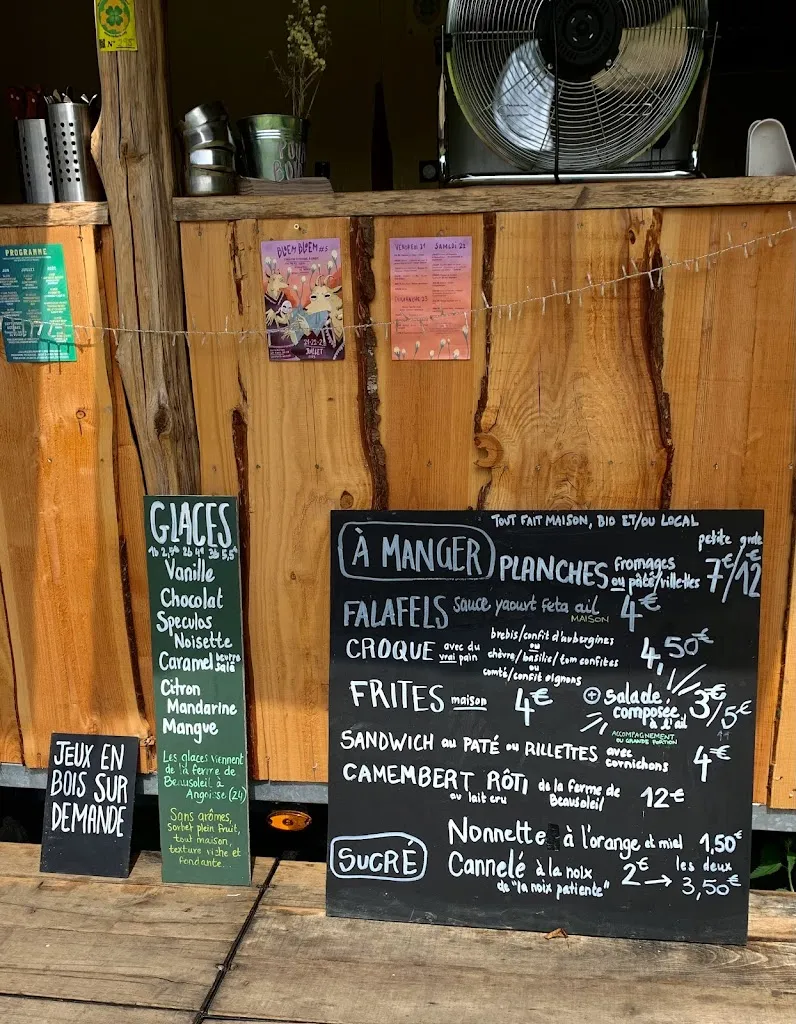 N°
POP
BODY
PROGRAMME
JUIN JUILLET AOÛT
BLOEM BLOEM #5
21-22-2
JUILLET
VENDREDI 21 SAMEDI 22
DIMANCHE 23
GLACES
1b 2,50 2b 4€ 3b 5,5€
Vanille
Chocolat
Speculos
Noisette
Caramel beurre salé
Citron
Mandarine
Mangue
Les glaces viennent
de la ferme de
Beausoleil à
Angoisse (24)
Sans arômes,
sorbet plein fruit,
tout maison,
texture riche et
fondante...
JEUX EN
BOIS SUR
DEMANDE
TOUT FAIT MAISON, BIO ET/OU LOCAL
À MANGER
petite grde
PLANCHES fromages ou pâté/rillettes 7€/12€
FALAFELS sauce yaourt feta ail MAISON 4€
CROQUE avec du vrai pain
brebis/confit d'aubergines
ou
chèvre/basilic/tom confites
ou
comté/confit oignons
4,50€
FRITES maison 4€
+ Salade composée 3€/5€
& à l'ail
ACCOMPAGNEMENT
OU GRANDE PORTION
SANDWICH au PATÉ ou RILLETTES avec cornichons 4€
CAMEMBERT RÔTI de la ferme de Beausoleil 12€
au lait cru
SUCRÉ
Nonnette à l'orange et miel 1,50€
Cannelé à la noix 2€ → les deux 3,50€
de "la noix patiente"